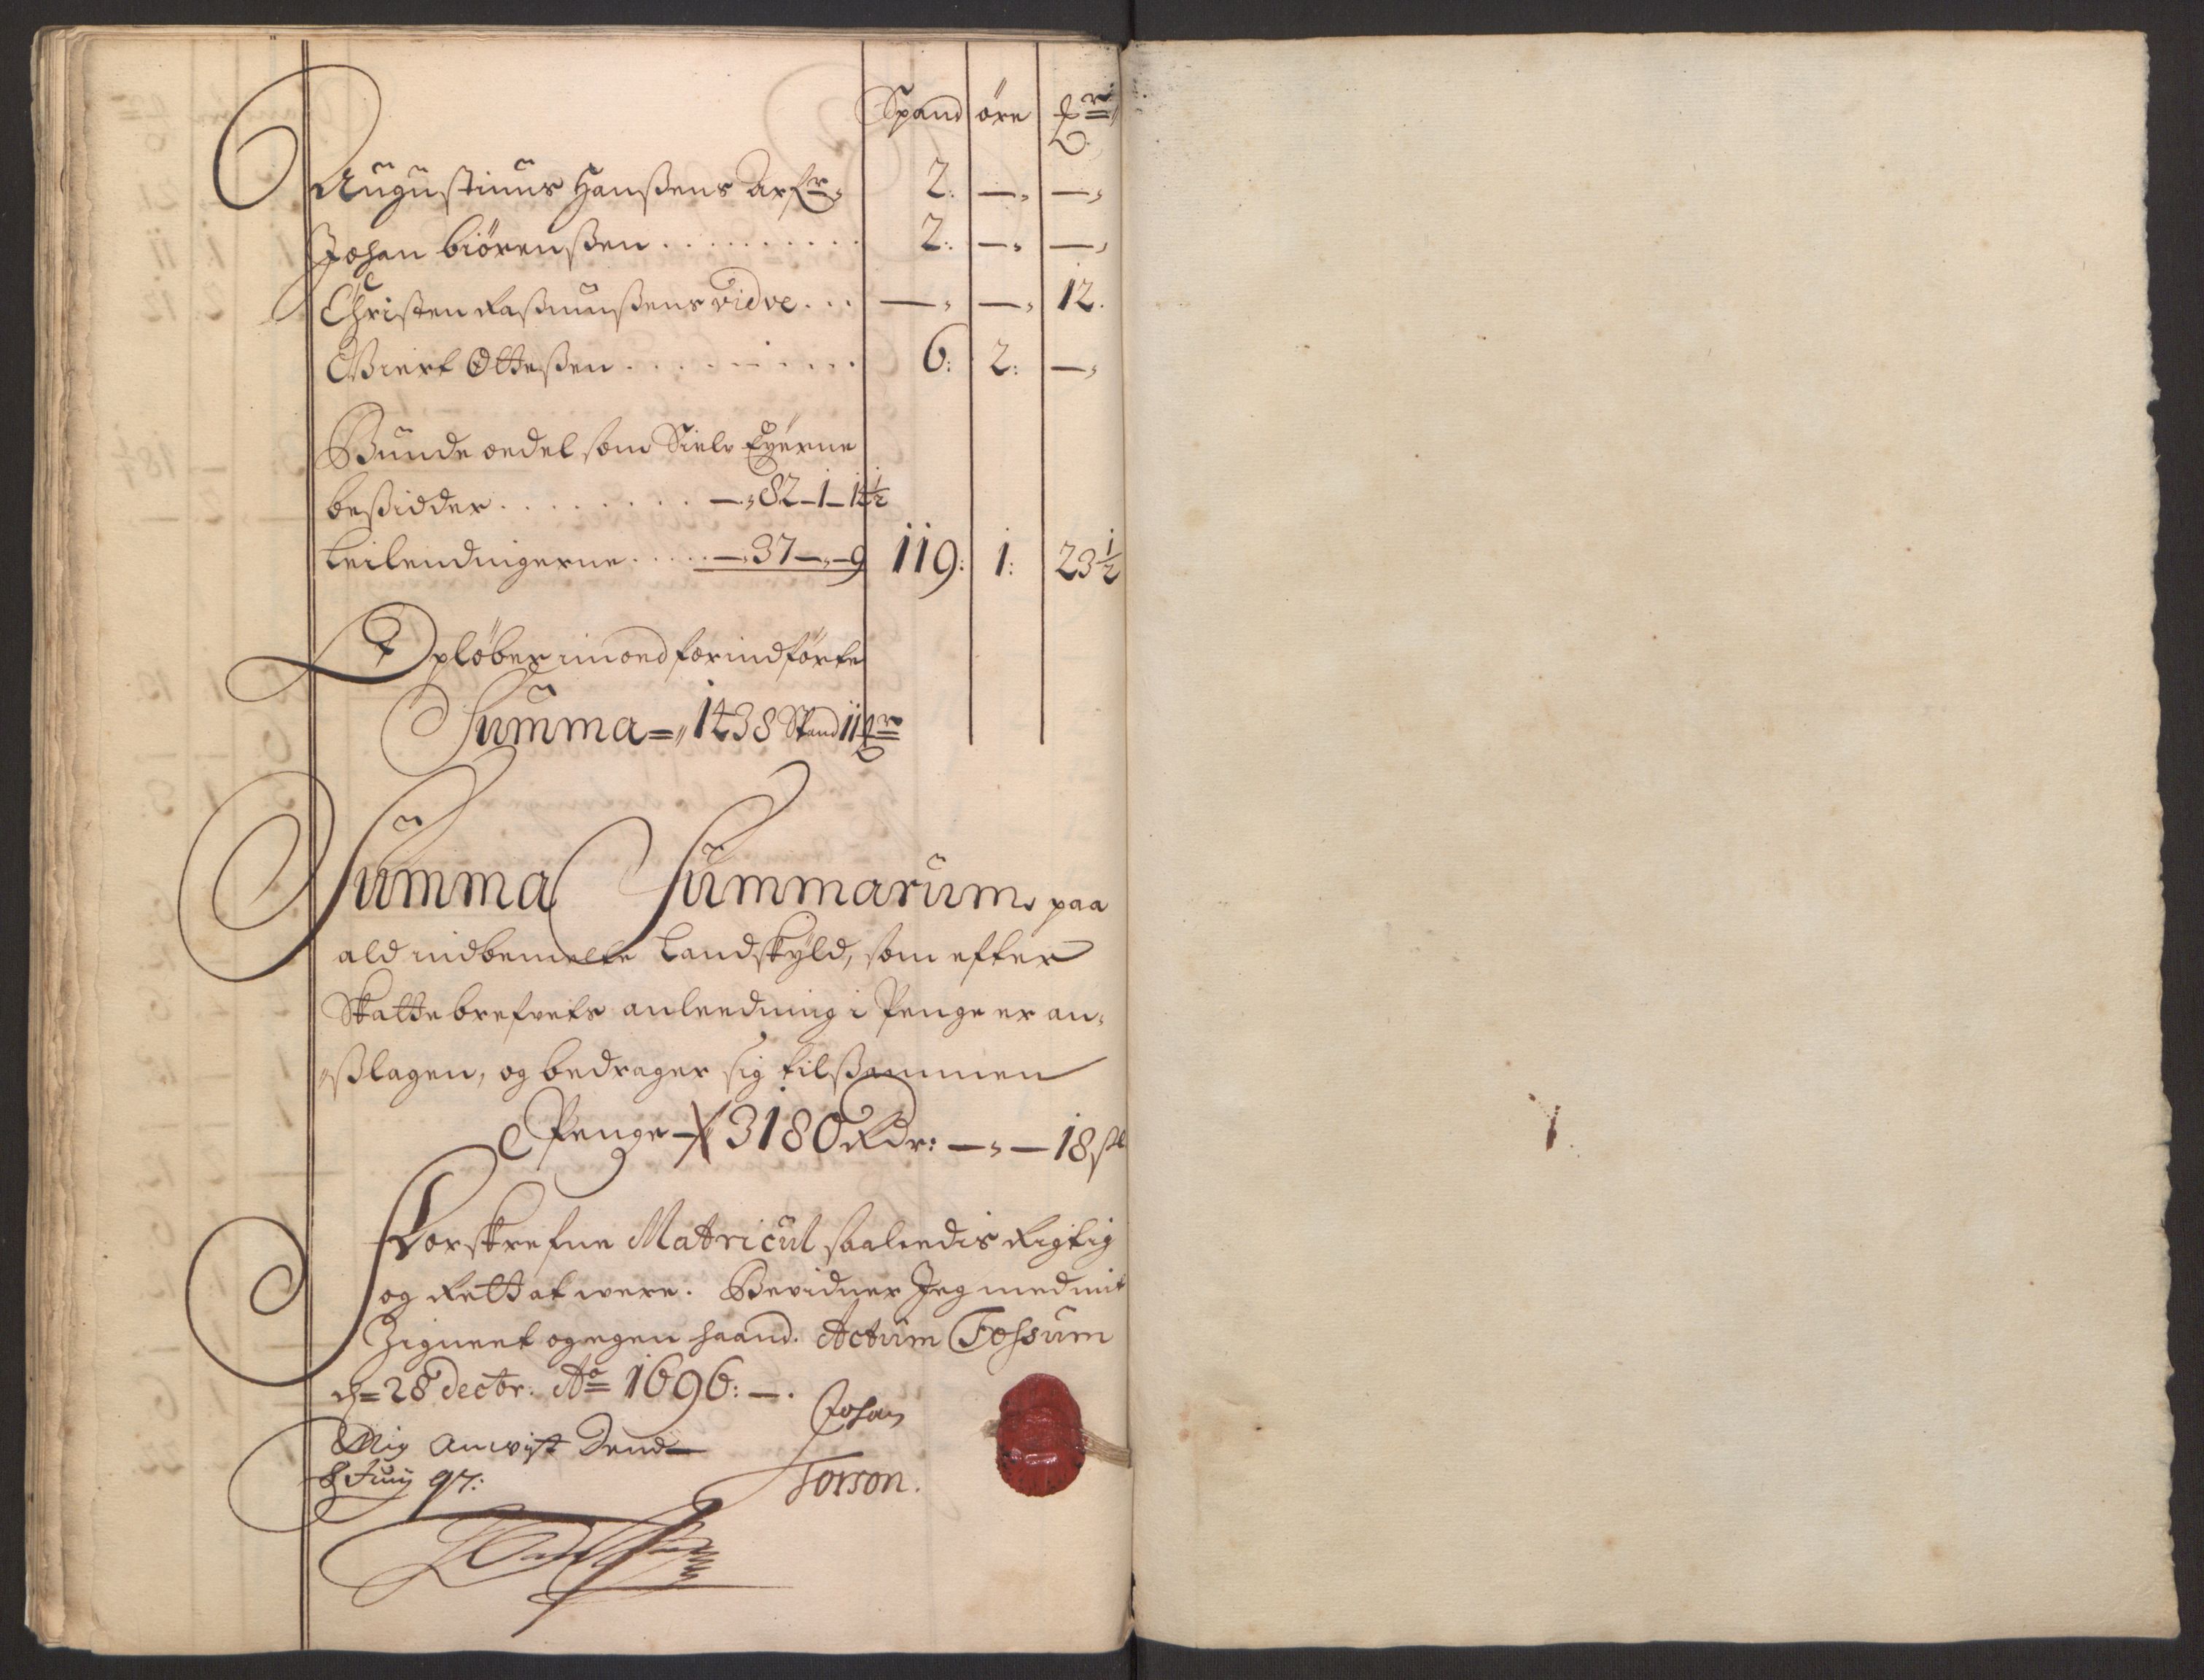 Spand öre
Augustinus Hanßens Arfr: 2: — —
Johan Biörenßen . . . . . . . . . 2: — —
Christen Raßmußens vidve . . . — — 12.
Giert Otteßen . . . . . . . . . 6: 2: —
Bunde oedel som Sielv Eyerne
beßidder . . . . . . . . — 82 – 1 – 14½
Leilendingerne . . . . . — 37 — — 9 119: 1: 23½
Opløber imod forindførte
Summa = 1438 Spand 11
Summa Summarum paa
ald indbemelte Landskyld, som efter
Skattebrefvets anleedning i Penge er an-
ßlagen, og bedrager sig tilßammen
Penge — 3180 Rdr: — — 18 sk
Forskrefne Matricul saaledis Rigtig
og Rett at were. Bevidner Jeg med mit
Zignet og egen haand. Actum Foßum
d= 28 Decbr. Ao 1696: —.
Johan
Miy Anvist Dend
8 Juny 97:
Torson.